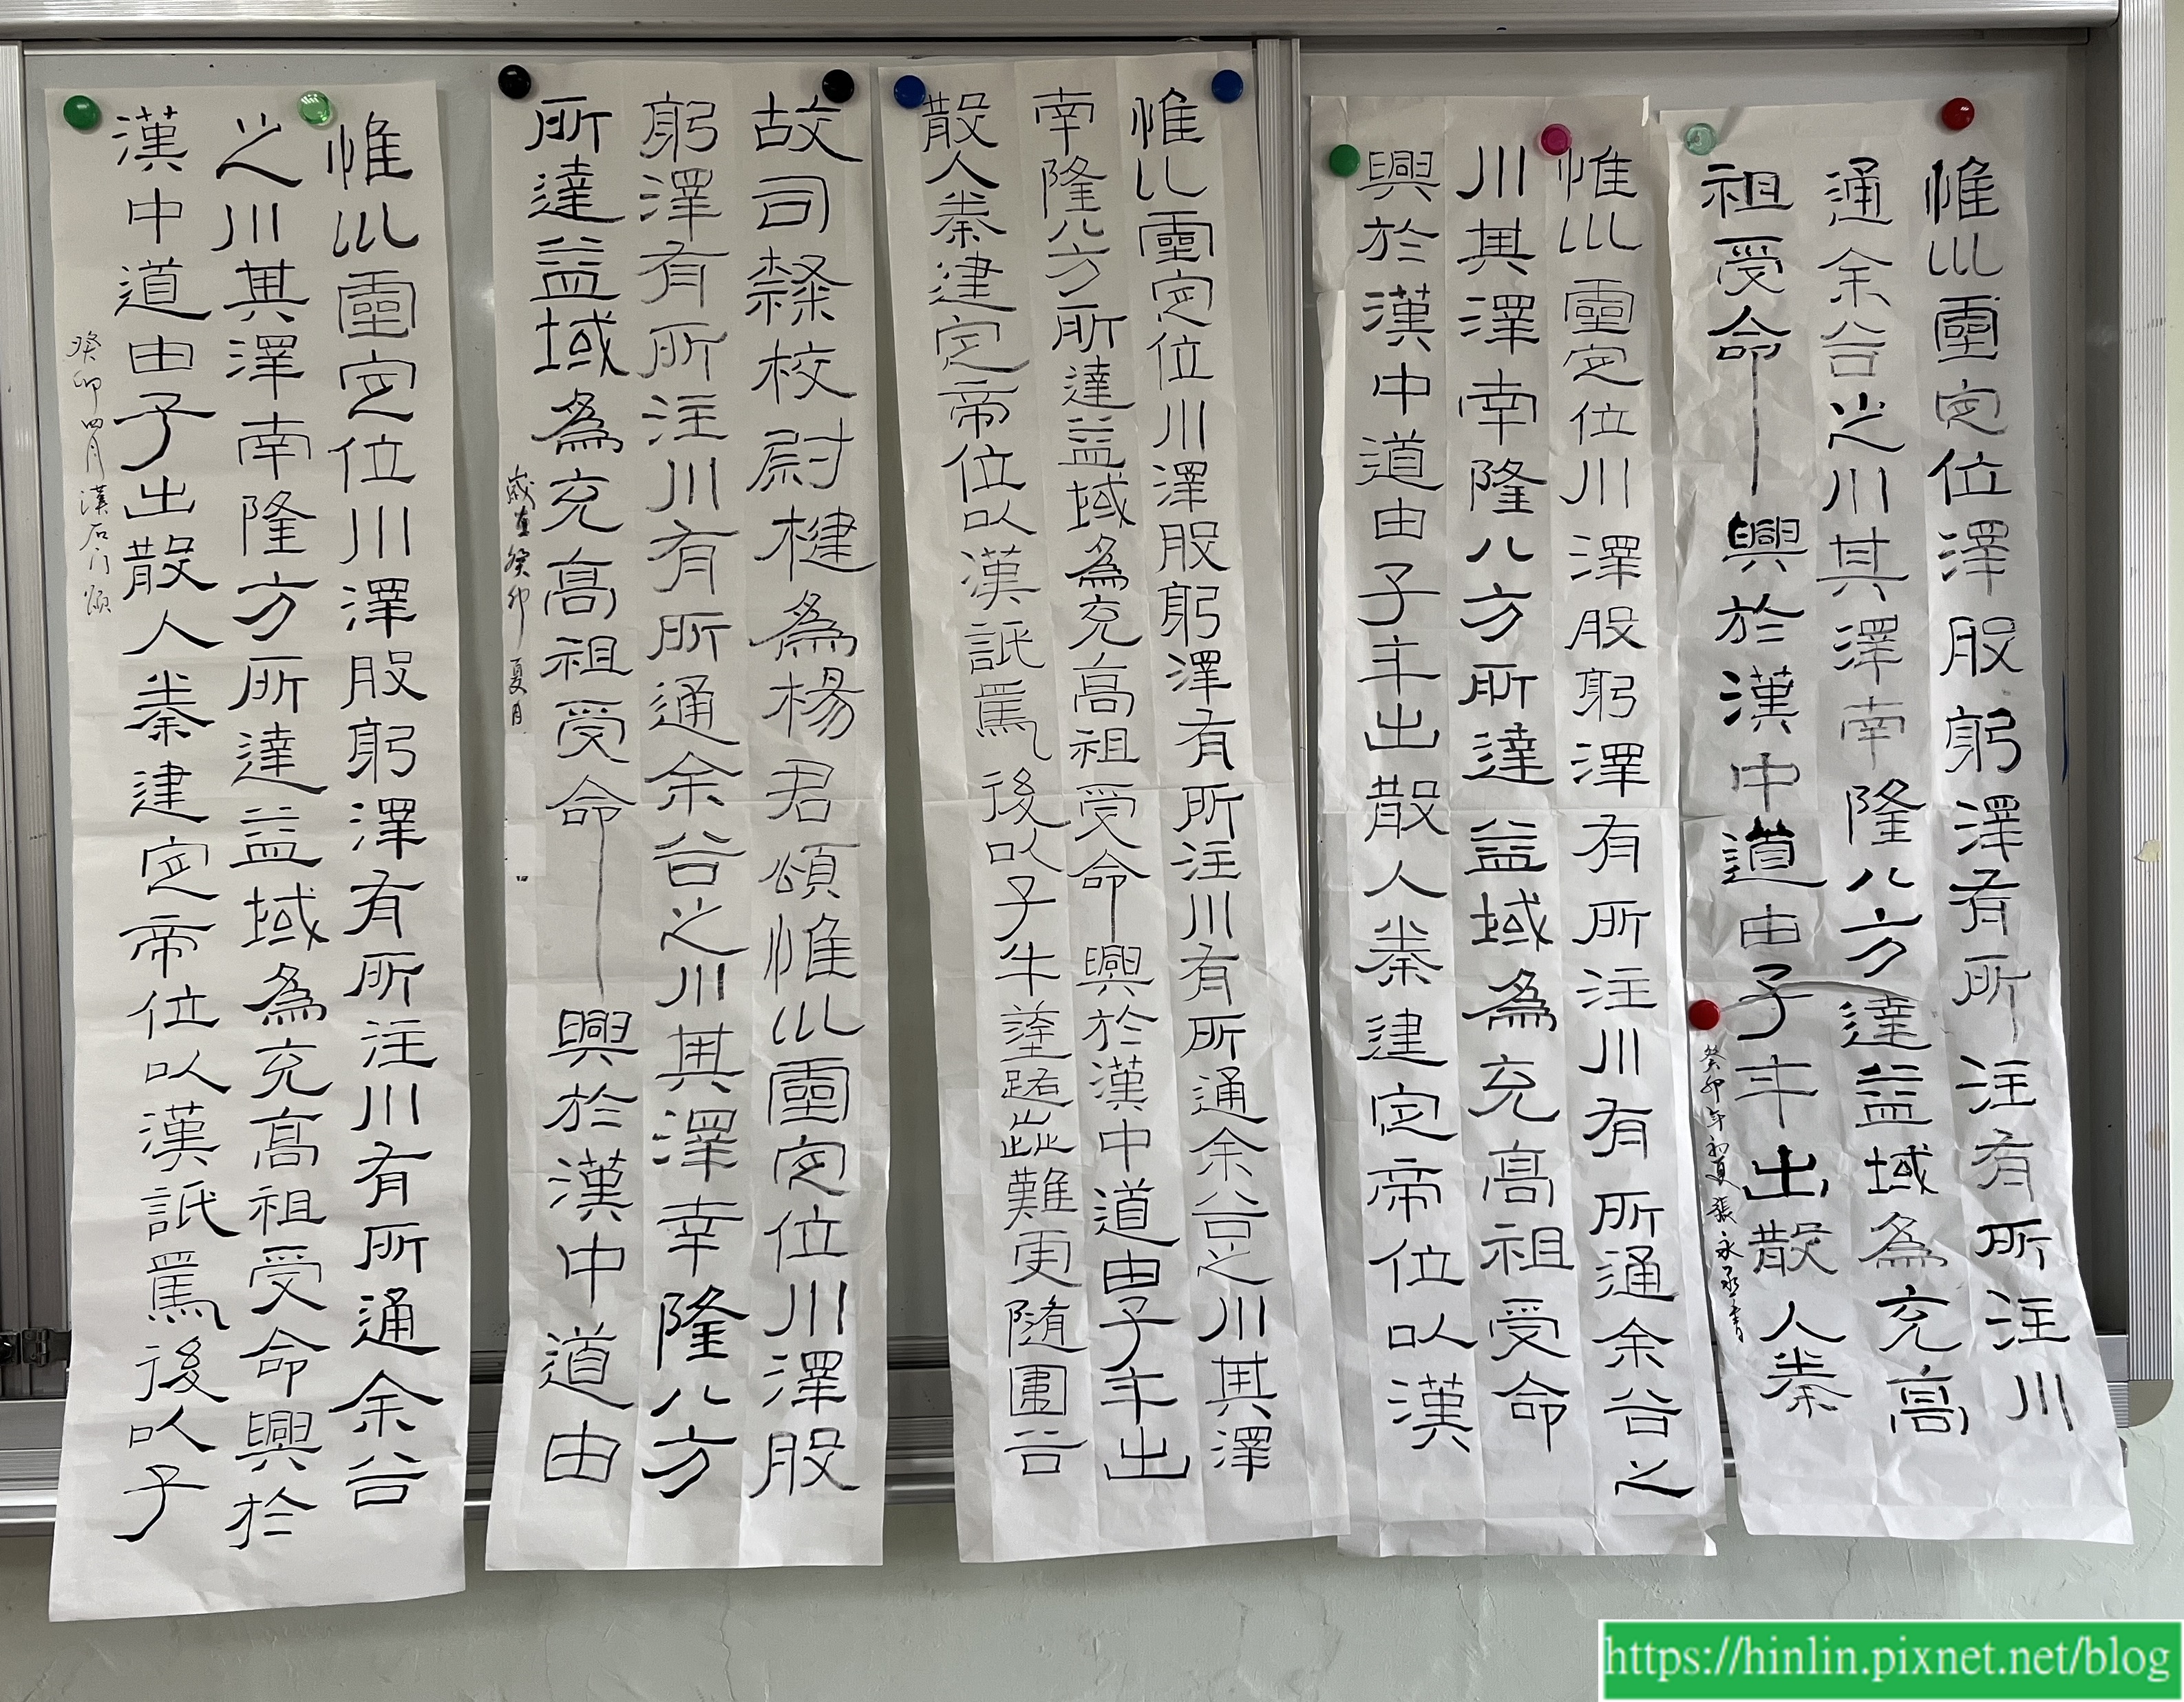 惟巛靈定位澤股躬澤有所注有所注川
通余谷之川其澤南隆八方達益域為充高
祖受命興於漢中道由子午出散人秦
癸卯年初夏張永丞書
惟巛靈定位川澤股躬澤有所注川有所通余谷之
川其澤南隆八方所達益域為充高祖受命
興於漢中道由子午出散人秦建定帝位以漢
惟巛靈定位川澤股躬澤有所注川有所通余谷之川其澤
南隆八方所達益域為充高祖受命興於漢中道由子午出
散人秦建定帝位以漢詆焉後以子午塗路歰難更隨圍谷
故司隸校尉楗為楊君頌惟巛靈定位川澤股
躬澤有所注川有所通余谷之川其澤南隆八方
所達益域為充高祖受命興於漢中道由
歲在癸卯夏月
惟巛靈定位川澤股躬澤有所注川有所通余谷
之川其澤南隆方所達益域為充高祖受命興於
漢中道由子出散人秦建定帝位以漢詆焉後以子
癸卯四月漢石门颂
https://hinlin.pixnet.net/blog